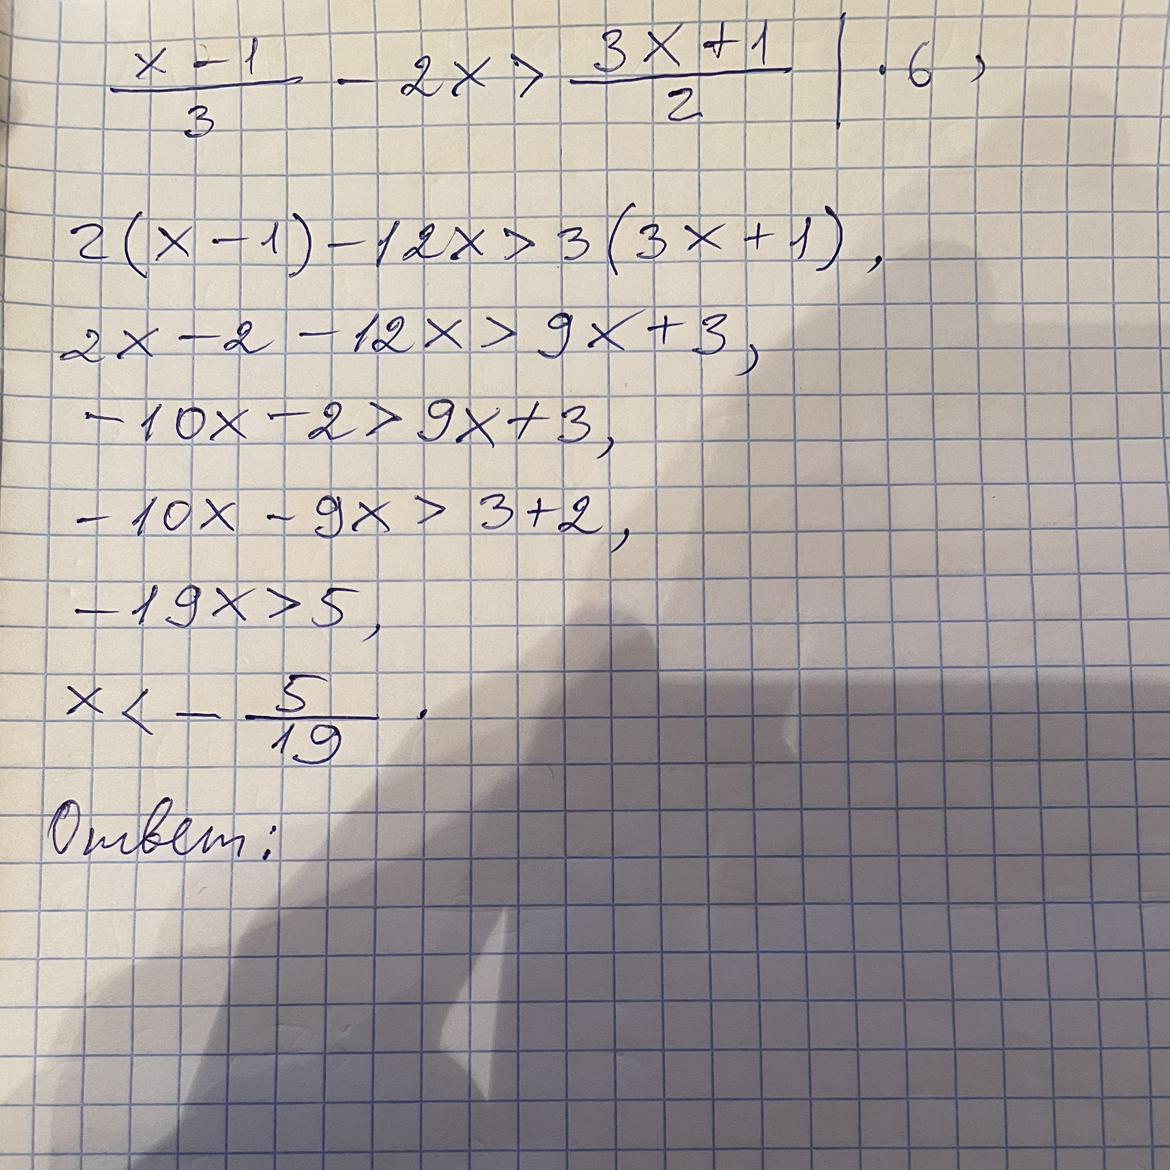 (x - 1)/3 - 2x > (3x + 1)/2 | · 6,
2(x - 1) - 12x > 3(3x + 1),
2x - 2 - 12x > 9x + 3,
-10x - 2 > 9x + 3,
-10x - 9x > 3 + 2,
-19x > 5,
x < - 5/19 .
Ответ: